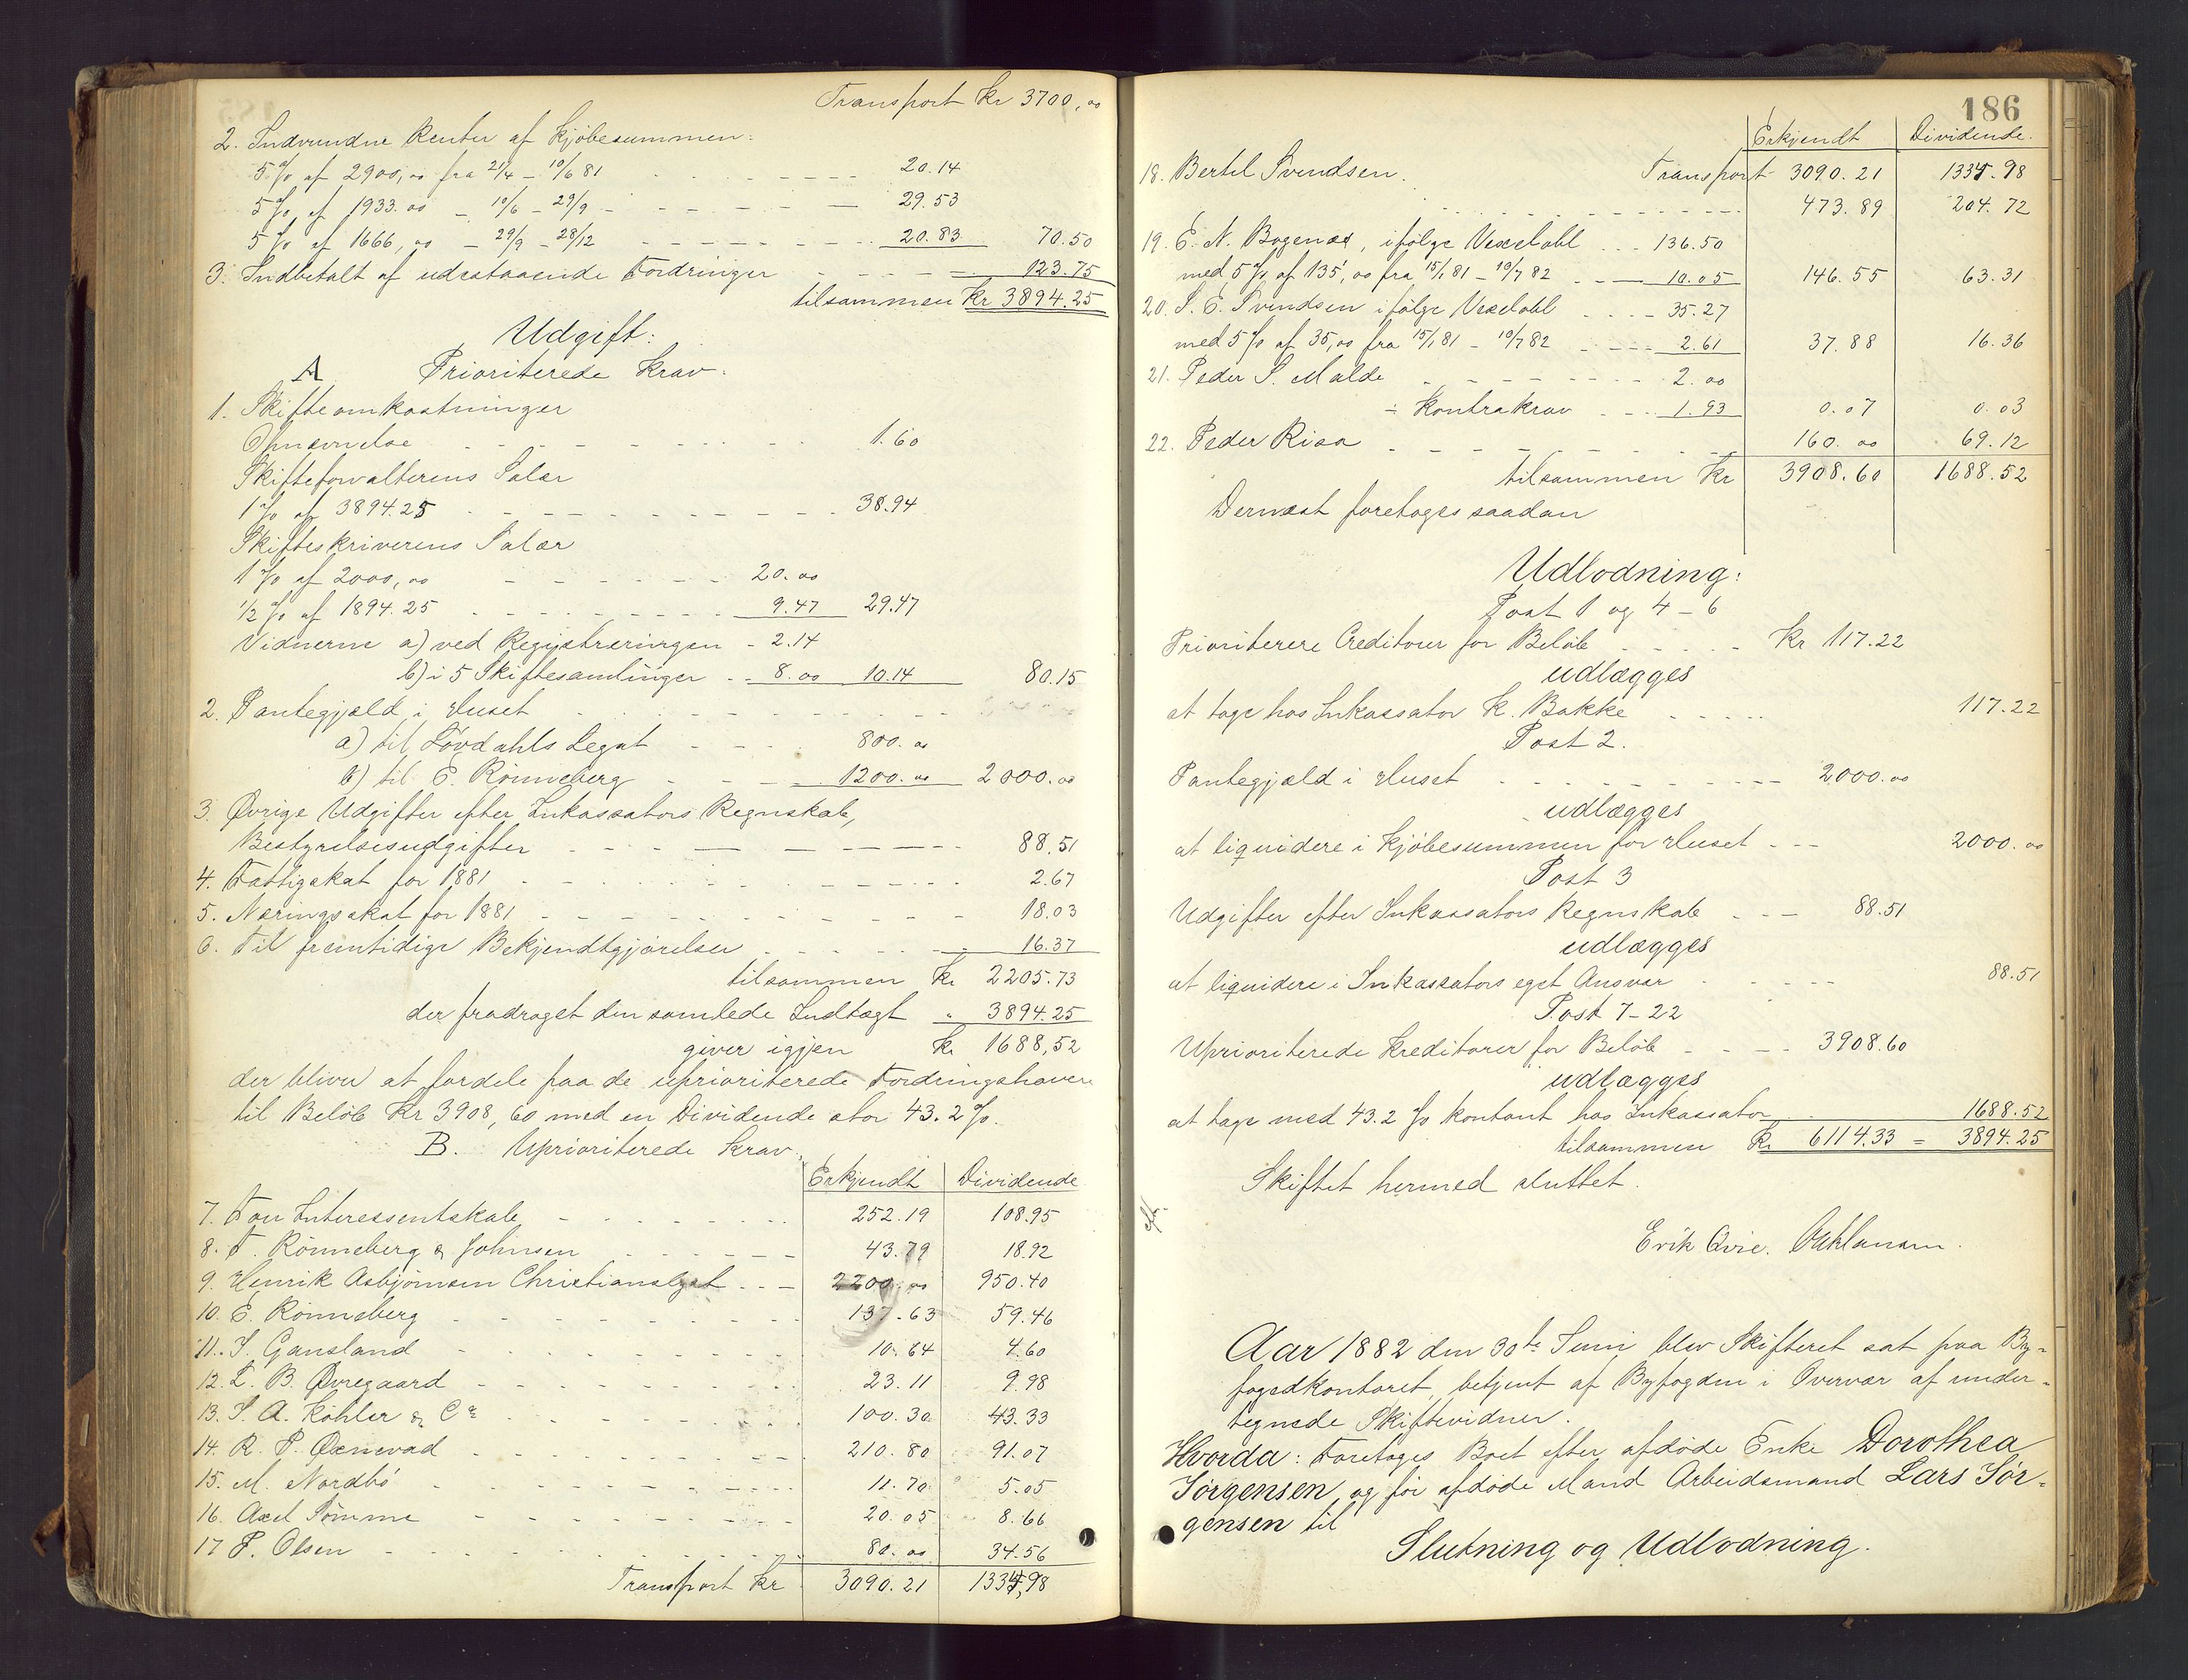 Transport Kr 3700,00
2. Indvundne Renter af Kjøbesummen:
5 % af 2900,00 fra 21/4 – 10/6 81 - - - - 20.14
5 % af 1933.00 – 10/6 – 29/9 - - - - 29.53
5 % af 1666,00 – 29/9 – 28/12 - - - - 20.83 70.50
3. Indbetalt af udestaaende Fordringer - - - - 123.75
tilsammen Kr 3894.25
Udgift:
A Prioriterede Krav.
1. Skifteomkostninger
Opnævnelse - - - - 1.60
Skifteforvalterens Salær
1 % af 3894.25 - - - - 38.94
Skifteskriverens Salær
1 % af 2000,00 - - - - 20.00
1/2 % af 1894.25 - - - - 9.47 29.47
Vidnerne a) ved Registreringen - 2.14
b) i 5 Skiftesamlinger - - 8.00 10.14 80.15
2. Pantegjæld i Huset - - - -
a) til Lövdahls Legat - - - - 800.00
b) til E. Rönneberg - - - - 1200.00 2000.00
3. Øvrige Udgifter efter Inkassators Regnskab,
Bestyrelsesudgifter - - - - 88.51
4. Fattigskat for 1881 - - - - 2.67
5. Næringsskat for 1881 - - - - 18.03
6. Til fremtidige Bekjendtgjörelser - - - - 16.37
tilsammen Kr 2205.73
der fradraget den samlede Indtægt " 3894.25
giver igjen Kr 1688,52
der bliver at fordele paa de uprioriterede Fordringshavere
til Beløb Kr 3908,60 med en Dividende stor 43.2 %.
B. Uprioriterede Krav.
Erkjendt Dividende
7. Fou Interessentskab - - - - 252.19 108.95
8. T. Rönneberg & Johnsen - - - - 43.79 18.92
9. Henrik Asbjörnsen Christianslyst - - - 2200,00 950.40
10. E. Rönneberg - - - - 137.63 59.46
11. I. Gausland - - - - 10.64 4.60
12. L. B. Øvregaard - - - - 23.11 9.98
13. I. A. Köhler & Co - - - - 100.30 43.33
14. R. P. Øxnevad - - - - 210.80 91.07
15. M. Nordbö - - - - 11.70 5.05
16. Axel Sömme - - - - 20.05 8.66
17 P. Olsen - - - - 80.00 34.56
Transport Kr 3090.21 1334,98
186
Erkjendt Dividende.
Transport 3090.21 1334.98
18. Bertil Svendsen. - - - - 473.89 204.72
19. E. N. Bogenæs, ifølge Vexelobl - - - 136.50
med 5 % af 135,00 fra 15/1 81 – 10/7 82 - - - 10.05 146.55 63.31
20. S. E. Svendsen ifølge Vexelobl - - - - 35.27
med 5 % af 35,00 fra 15/1 81 – 10/7 82 - - - - 2.61 37.88 16.36
21. Peder S. Malde - - - - 2.00
÷ Kontrakrav - - - 1.93 0.07 0.03
22. Peder Risa - - - - 160.00 69.12
tilsammen Kr 3908.60 1688.52
Dernæst foretoges saadan
Udlodning:
Post 1 og 4 – 6
Prioriterede Creditorer for Beløb - - - - Kr 117.22
udlægges
at tage hos Inkassator K. Bakke - - - - 117.22
Post 2.
Pantegjæld i Huset - - - - 2000.00
udlægges
at liquidere i Kjöbesummen for Huset - - - 2000.00
Post 3
Udgifter efter Inkassators Regnskab - - - 88.51
udlægges
at liquidere i Inkassators eget Ansvar - - - - 88.51
Post 7–22
Uprioriterede Kreditorer for Beløb - - - - 3908.60
udlægges
at tage med 43.2 % kontant hos Inkassator 1688.52
tilsammen Kr 6114.33 = 3894.25
Skiftet hermed sluttet.
Erik Qvie.
Aar 1882 den 30te Juni blev Skifteret sat paa By-
fogedkontoret, betjent af Byfogden i Overvær af under-
tegnede Skiftevidner.
Hvorda: Foretoges Boet efter afdøde Enke Dorothea
Jörgensen og för afdøde Mand Arbeidsmand Lars Jör-
gensen til
Slutning og Udlodning.